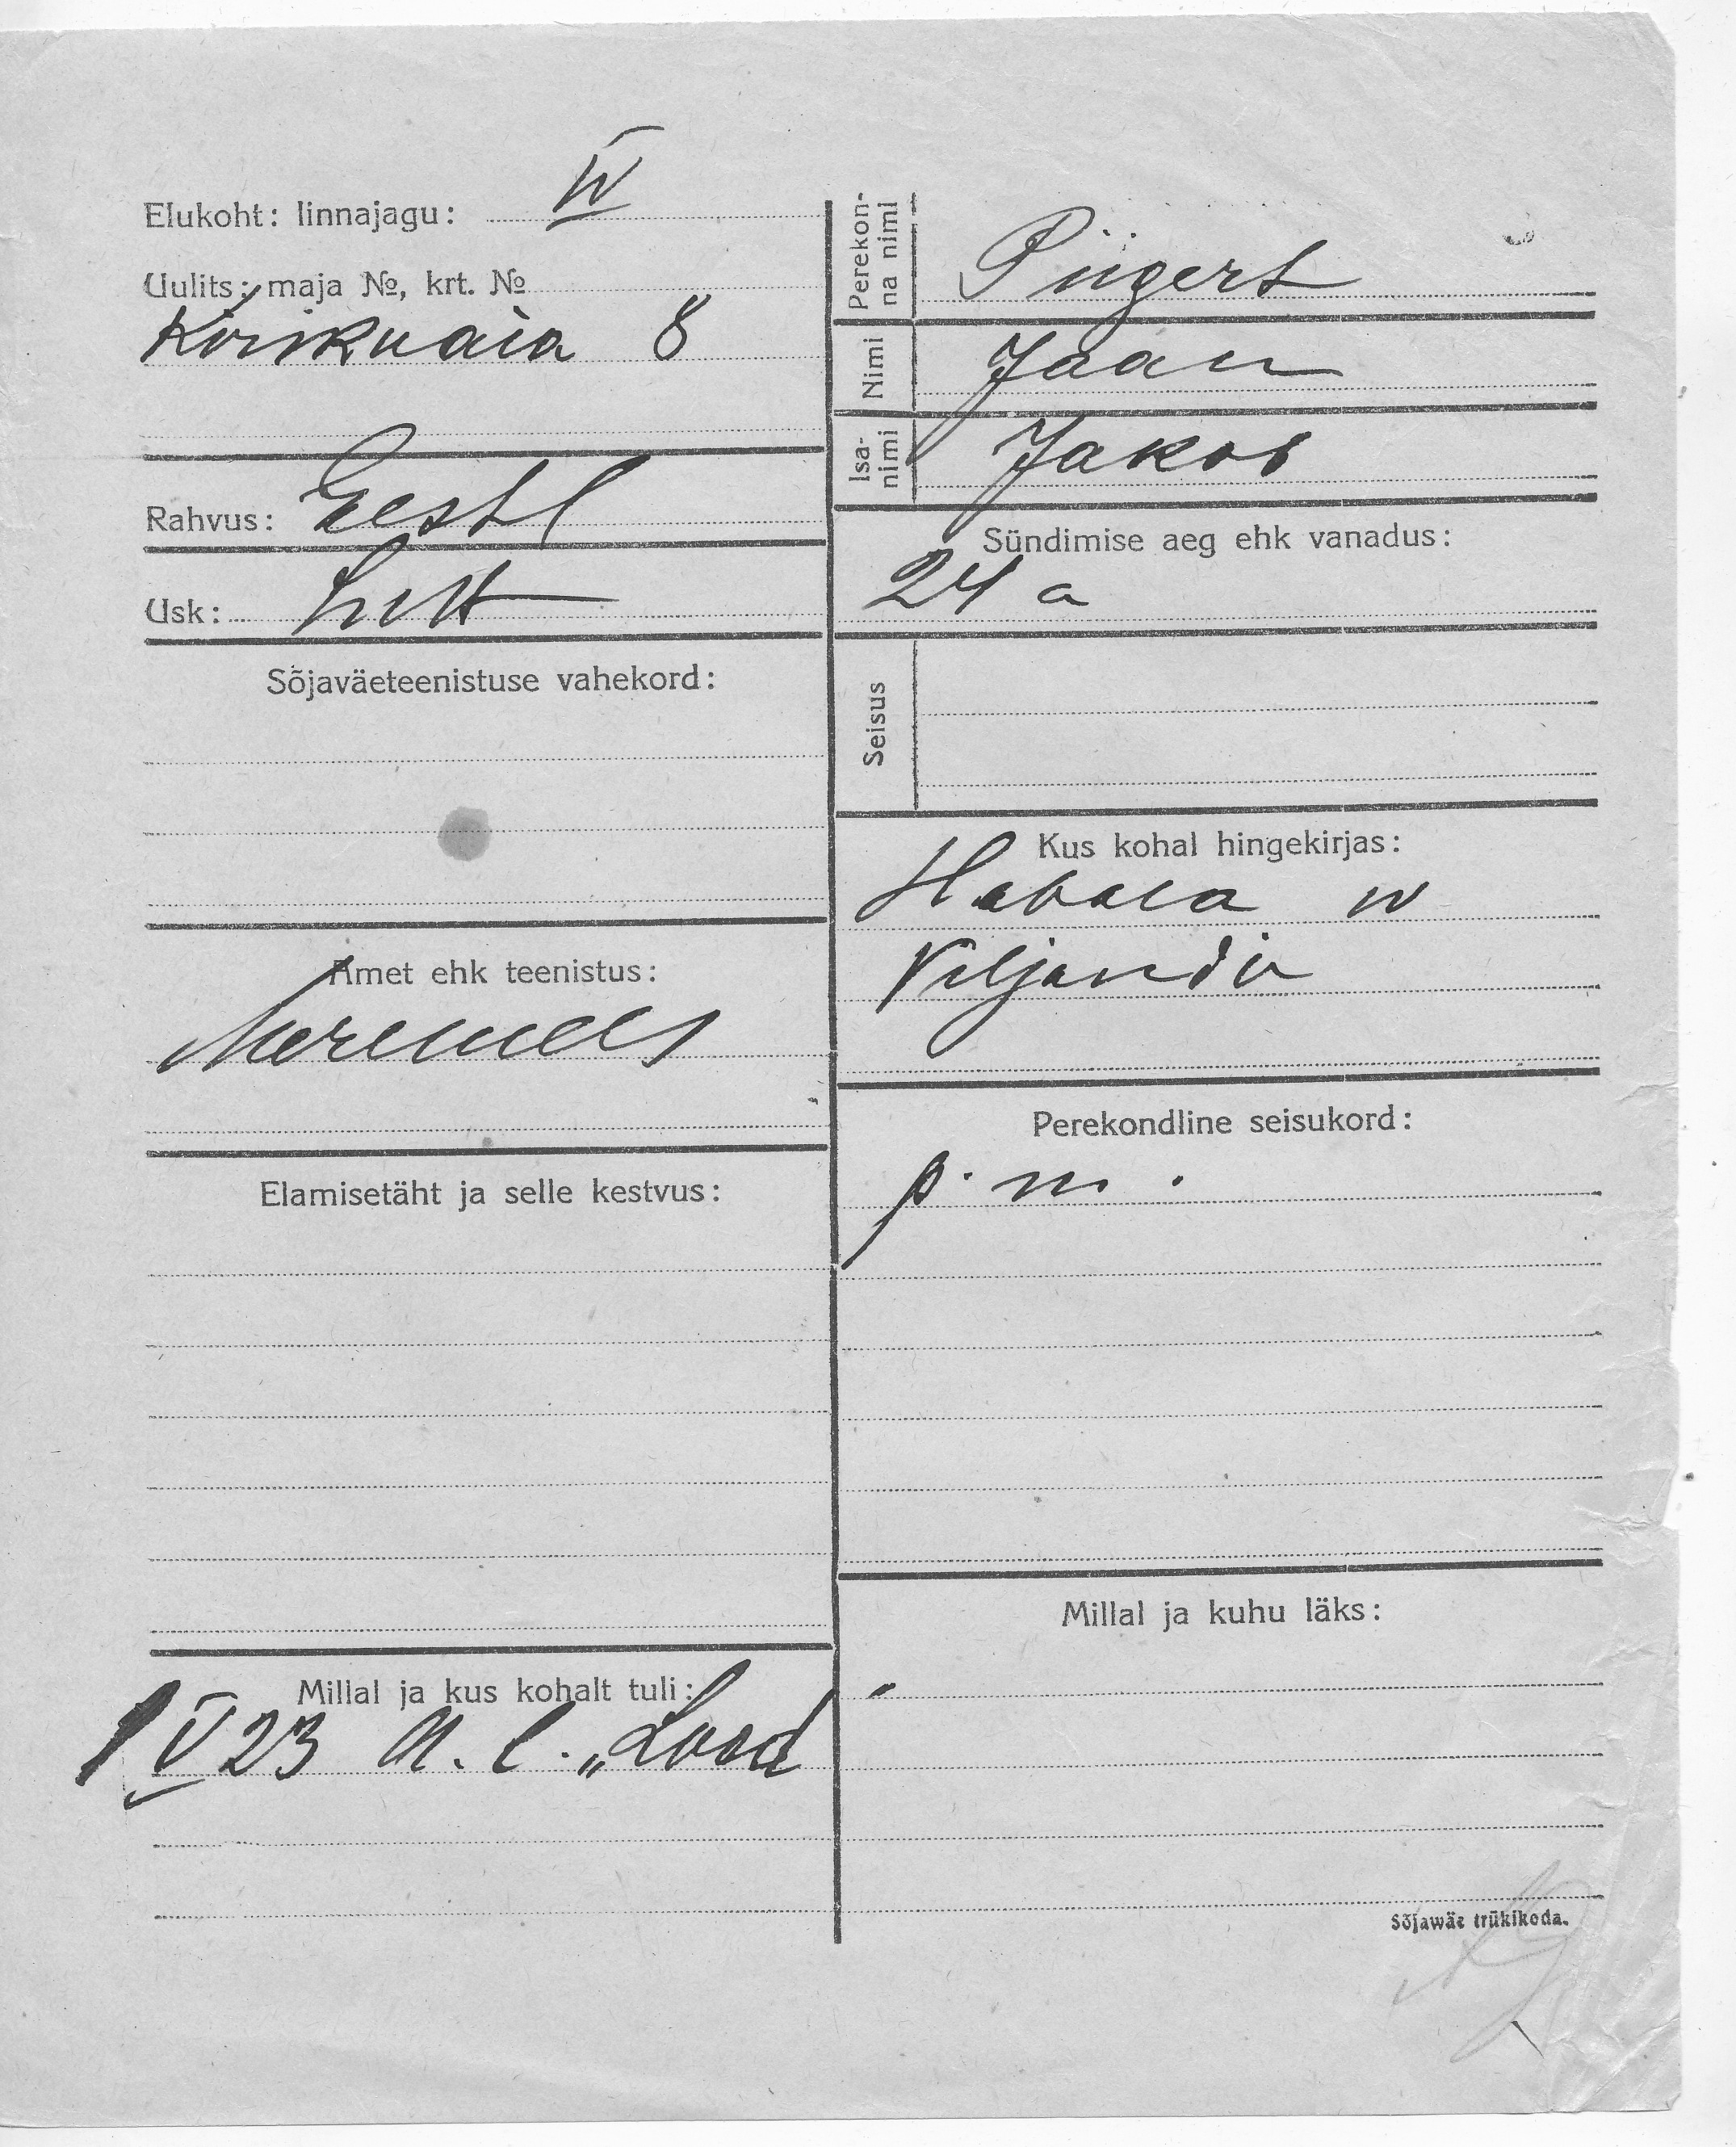 Elukoht: linnajagu: IV
Uulits: maja №, krt. №
Kirikuaia 8
Rahvus: Eestl
Usk: Lutt
Sõjaväeteenistuse vahekord:
Amet ehk teenistus:
Meremees
Elamisetäht ja selle kestvus:
Millal ja kus kohalt tuli:
1 V 23 A. l. „Lood"
Perekon-
na nimi
Piigert
Nimi
Jaan
Isa-
nimi
Jakob
Sündimise aeg ehk vanadus:
24 a
Seisus
Kus kohal hingekirjas:
w
Viljandi
Perekondline seisukord:
p. m.
Millal ja kuhu läks:
Sõjawäe trükikoda.